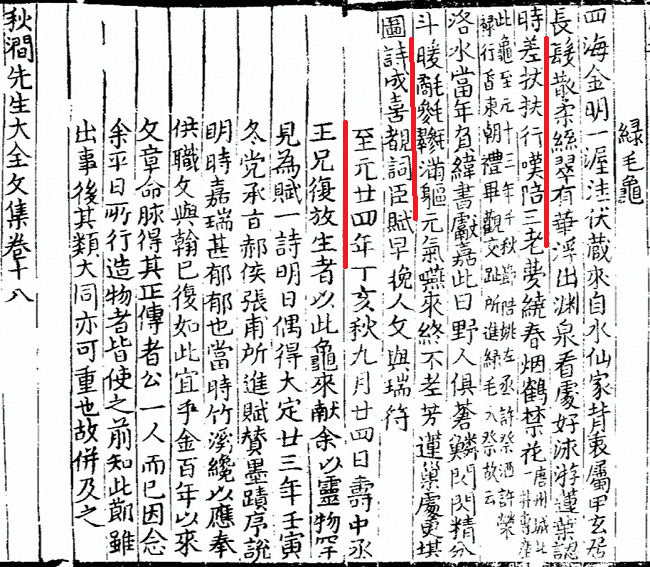 綠毛龜
四海金明一渥洼伏蔵來自水仙家背裏屬甲玄居
長髮散柔絲翠有華浮出渊泉看處好泳游蓮葉認
時差扶扶行嘆陪三老夢繞春烟鶴禁花唐州城北一井專產
此龜至元十三年千秋節陪姚左丞許祭酒許榮
祿行香東朝禮畢觀交趾所進緑毛入祭故云
洛水當年負緯書獻嘉此日野人俱蒼鱗閃閃精分
斗暖滿軀元氣嚥來終不老芳蓮巢處更堪
圖詩成喜覩詞臣賦早晚人文與瑞符
至元廿四年丁亥秋九月廿四日壽中丞
王兄復放生者以此龜來献余以靈物罕
見為賦一詩明日偶得大定廿三年壬寅
冬党承旨郝俟張甫所進賦賛墨蹟序説
明時嘉瑞甚郁郁也當時竹溪纔以應奉
供職文與翰已復如此宜乎金百年以來
文章命脉得其正傳者公一人而已因念
余平日所行造物者皆使之前知此節雖
出事後其類大同亦可重也故併及之
秋澗先生大全文集卷十八